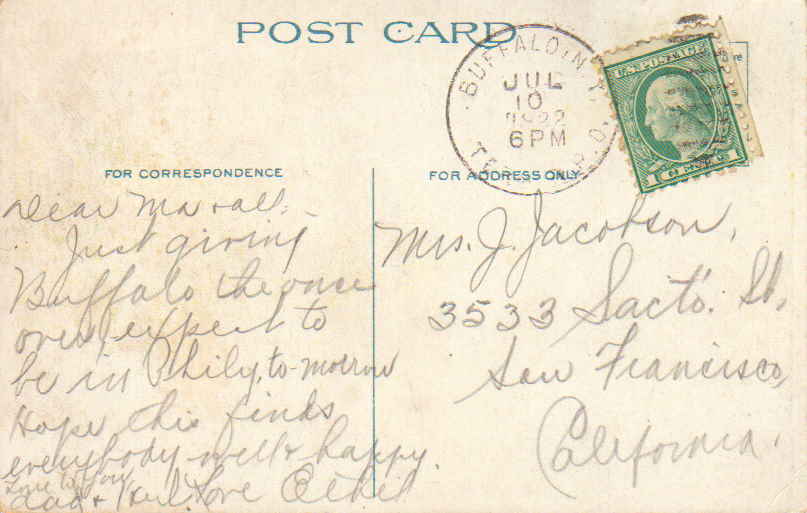 POST CARD
BUFFALO, N.Y.
JUL
10
1922
6PM
U.S. POSTAGE
1 CENT 1
FOR CORRESPONDENCE
FOR ADDRESS ONLY
Dear Ma & all -
Just giving
Buffalo the once
over, expect to
be in Phily, to-morrow
Hope this finds
everybody well & happy.
Love to you
dad & Love Ethel
Mrs. J. Jacobson,
3533 Sact'o. St,
San Francisco,
California.